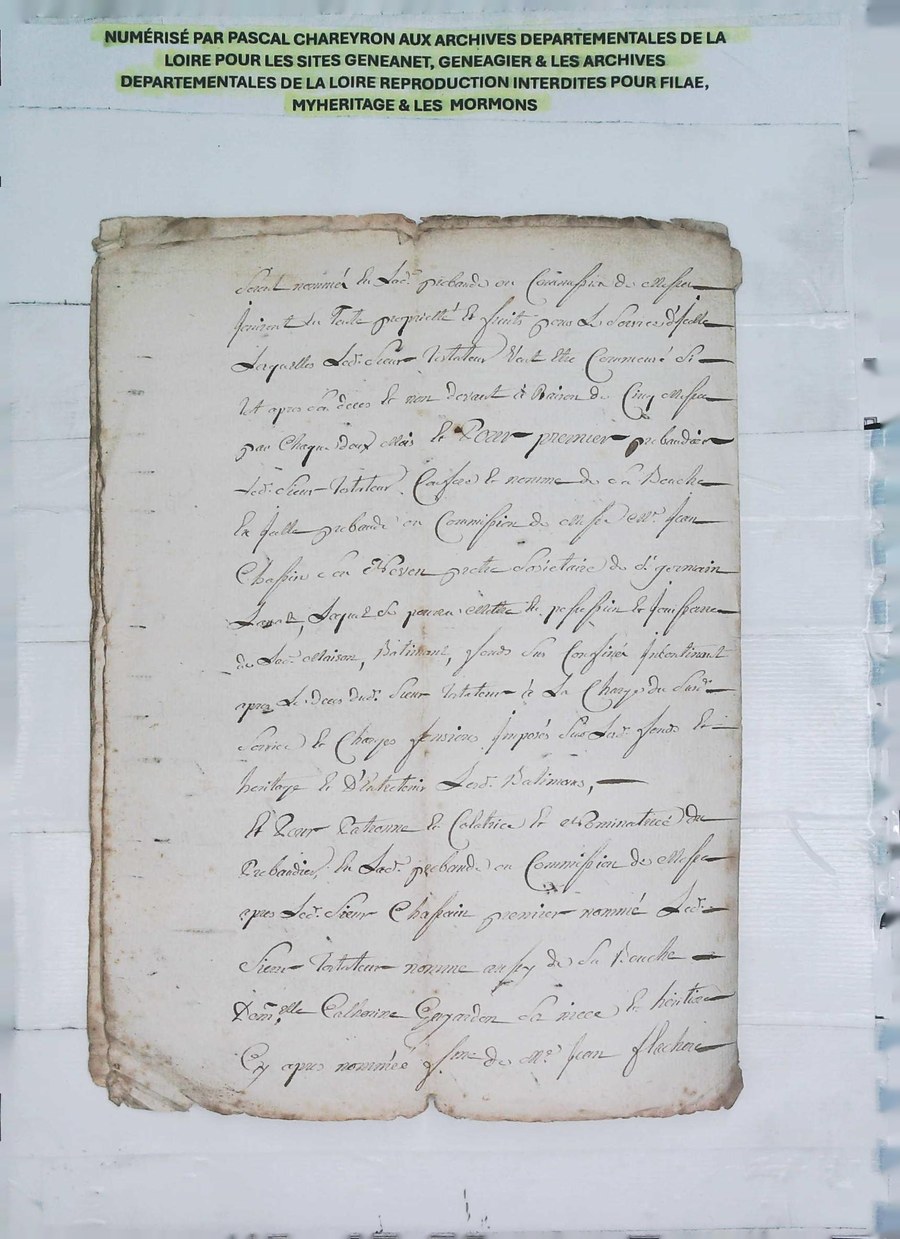 NUMÉRISÉ PAR PASCAL CHAREYRON AUX ARCHIVES DEPARTEMENTALES DE LA
LOIRE POUR LES SITES GENEANET, GENEAGIER & LES ARCHIVES
DEPARTEMENTALES DE LA LOIRE REPRODUCTION INTERDITES POUR FILAE,
MYHERITAGE & LES MORMONS
Seront nommés en Lad. prebande ou Commission de Messes
Jouiront en Toute proprietté et fruits pour Le Service d'Jcelle
Laquelles Led. Sieur Testateur Veut être Commencé
Et apres son deces et non devant à Raison de Cinq Messes
par Chaque deux Mois et Pour premier prebandier
Led. Sieur Testateur Confere et nomme de sa Bouche
En Jcelle prebande ou Commission de Messes Mr. Jean
Chassain pretre Societaire de St. germain
Laval, Lequel se pourra Mettre en possession et Jouissance
de Lad. Maison, Batiment, fonds sus Confinés Jncontinant
apres Le deces dud. Sieur Testateur à La Charge du Susd.
Service et Charges Jmposés Sus Lad. fonds et
heritage et D'Entretenir Lesd. Batimens,
Et Pour Patronne et Colatrice et Nominatrice du
Prebandier En Lad. prebande ou Commission de Messes
apres Led. Sieur Chassain premier nommé Led.
Sieur Testateur nomme aussy de Sa Bouche
Dam.elle Catherine Gerardon Sa niece et héritiere
Cy apres nommée fme de Mr. Jean